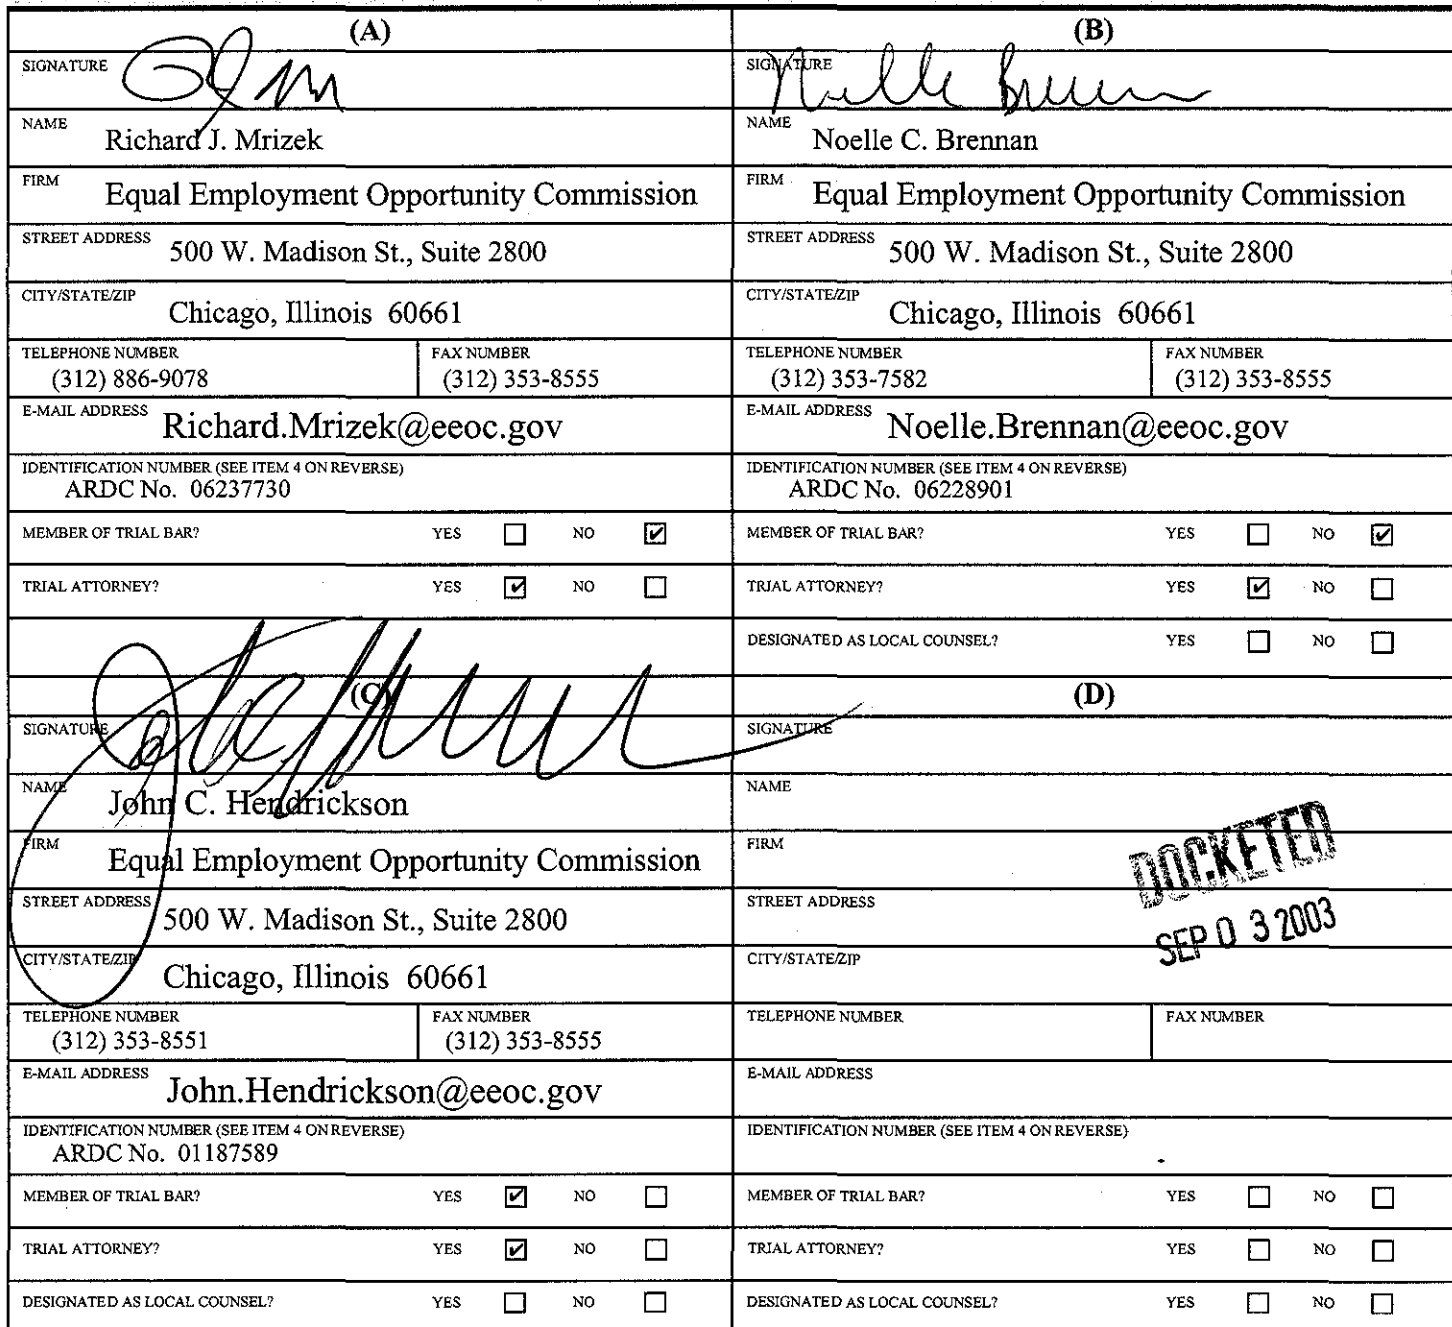 (A)
SIGNATURE
NAME Richard J. Mrizek
FIRM Equal Employment Opportunity Commission
STREET ADDRESS 500 W. Madison St., Suite 2800
CITY/STATE/ZIP Chicago, Illinois 60661
TELEPHONE NUMBER FAX NUMBER
(312) 886-9078 (312) 353-8555
E-MAIL ADDRESS Richard.Mrizek@eeoc.gov
IDENTIFICATION NUMBER (SEE ITEM 4 ON REVERSE)
ARDC No. 06237730
MEMBER OF TRIAL BAR? YES ☐ NO ☑
TRIAL ATTORNEY? YES ☑ NO ☐
(B)
SIGNATURE
NAME Noelle C. Brennan
FIRM Equal Employment Opportunity Commission
STREET ADDRESS 500 W. Madison St., Suite 2800
CITY/STATE/ZIP Chicago, Illinois 60661
TELEPHONE NUMBER FAX NUMBER
(312) 353-7582 (312) 353-8555
E-MAIL ADDRESS Noelle.Brennan@eeoc.gov
IDENTIFICATION NUMBER (SEE ITEM 4 ON REVERSE)
ARDC No. 06228901
MEMBER OF TRIAL BAR? YES ☐ NO ☑
TRIAL ATTORNEY? YES ☑ NO ☐
DESIGNATED AS LOCAL COUNSEL? YES ☐ NO ☐
(C)
SIGNATURE
NAME John C. Hendrickson
FIRM Equal Employment Opportunity Commission
STREET ADDRESS 500 W. Madison St., Suite 2800
CITY/STATE/ZIP Chicago, Illinois 60661
TELEPHONE NUMBER FAX NUMBER
(312) 353-8551 (312) 353-8555
E-MAIL ADDRESS John.Hendrickson@eeoc.gov
IDENTIFICATION NUMBER (SEE ITEM 4 ON REVERSE)
ARDC No. 01187589
MEMBER OF TRIAL BAR? YES ☑ NO ☐
TRIAL ATTORNEY? YES ☑ NO ☐
DESIGNATED AS LOCAL COUNSEL? YES ☐ NO ☐
(D)
SIGNATURE
NAME
FIRM
DOCKETED
STREET ADDRESS
SEP 03 2003
CITY/STATE/ZIP
TELEPHONE NUMBER FAX NUMBER
E-MAIL ADDRESS
IDENTIFICATION NUMBER (SEE ITEM 4 ON REVERSE)
MEMBER OF TRIAL BAR? YES ☐ NO ☐
TRIAL ATTORNEY? YES ☐ NO ☐
DESIGNATED AS LOCAL COUNSEL? YES ☐ NO ☐